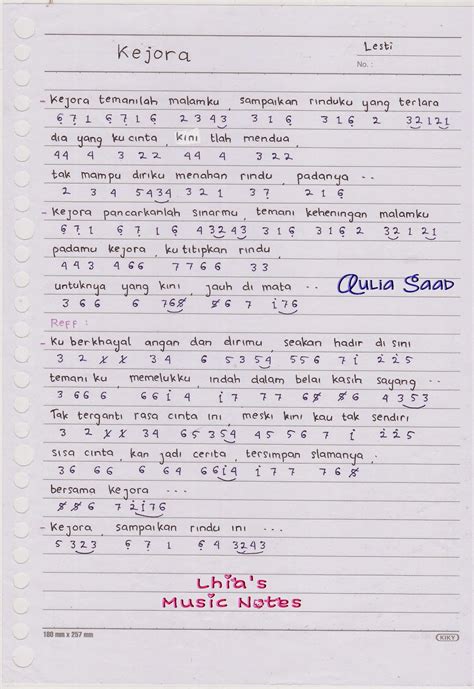 Kejora
Lesti
No. :
- Kejora temanilah malamku, sampaikan rinduku yang terlara
6 7 1 6 7 1 6 2 3 4 3 3 1 6 3 1 6 2 3 2 1 2 1
dia yang ku cinta, kini tlah mendua,
4 4 4 3 2 2 4 4 4 3 2 2
tak mampu diriku menahan rindu, padanya ...
2 3 4 5 4 3 4 3 2 1 3 7 2 1 6
- Kejora pancarkanlah sinarmu, temani keheningan malamku
6 7 1 6 7 1 6 4 3 2 4 3 3 1 6 3 1 6 2 3 2 1 2 1
padamu kejora, ku titipkan rindu,
4 4 3 4 6 6 7 7 6 6 3 3
untuknya yang kini, jauh di mata ...
3 6 6 6 7 6 8 8 6 7 i 7 6
Aulia Saad
Reff :
- Ku berkhayal angan dan dirimu, seakan hadir di sini
3 2 x x 3 4 6 5 3 5 4 5 5 6 7 i 2 2 5
temani ku, memelukku, indah dalam belai kasih sayang ...
3 6 6 6 6 6 i 4 i 7 7 6 8 8 6 6 4 3 5 3
Tak terganti rasa cinta ini, meski kini kau tak sendiri
3 2 x x 3 4 6 5 3 5 4 4 5 5 6 7 i 2 2 5
sisa cinta, kan jadi cerita, tersimpan slamanya,
3 6 6 6 6 6 4 6 6 i 4 i 7 7 7 6 8
bersama kejora ...
8 8 6 7 2 i 7 6
- Kejora, sampaikan rindu ini ...
5 3 2 3 6 7 1 6 4 3 2 4 3
Lhia's
Music Notes
180 mm x 257 mm
KIKY